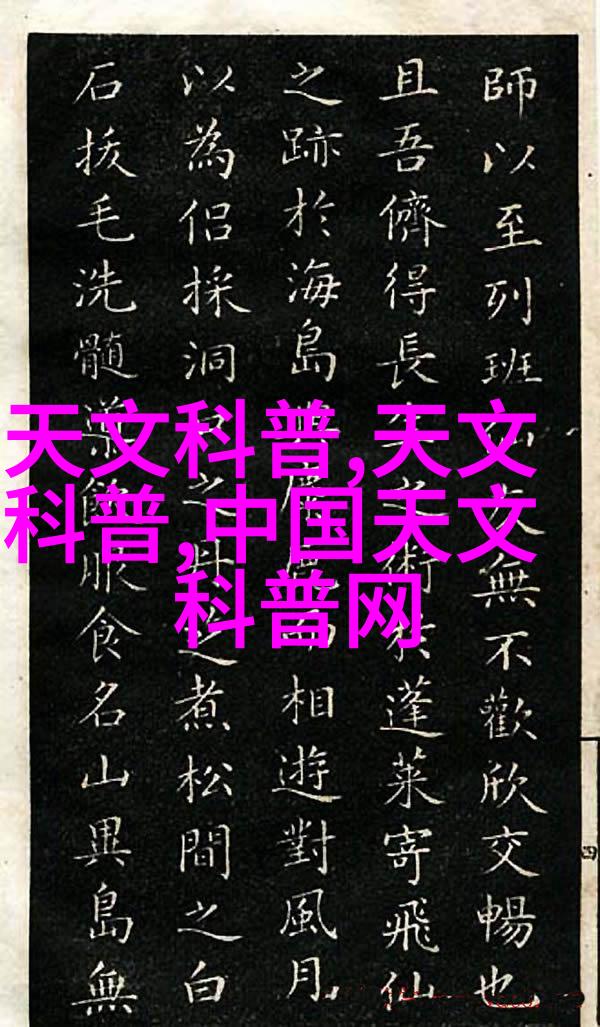 天文科普,天文
科普,中国天文
科普网
師以至列班無不歡欣交暢也
且吾儕得長術蓬萊寄飛仙
之跡於海島而相遊對風月
以為侶採洞之煮松間之白
石拔毛洗髓服食名山異島無
四